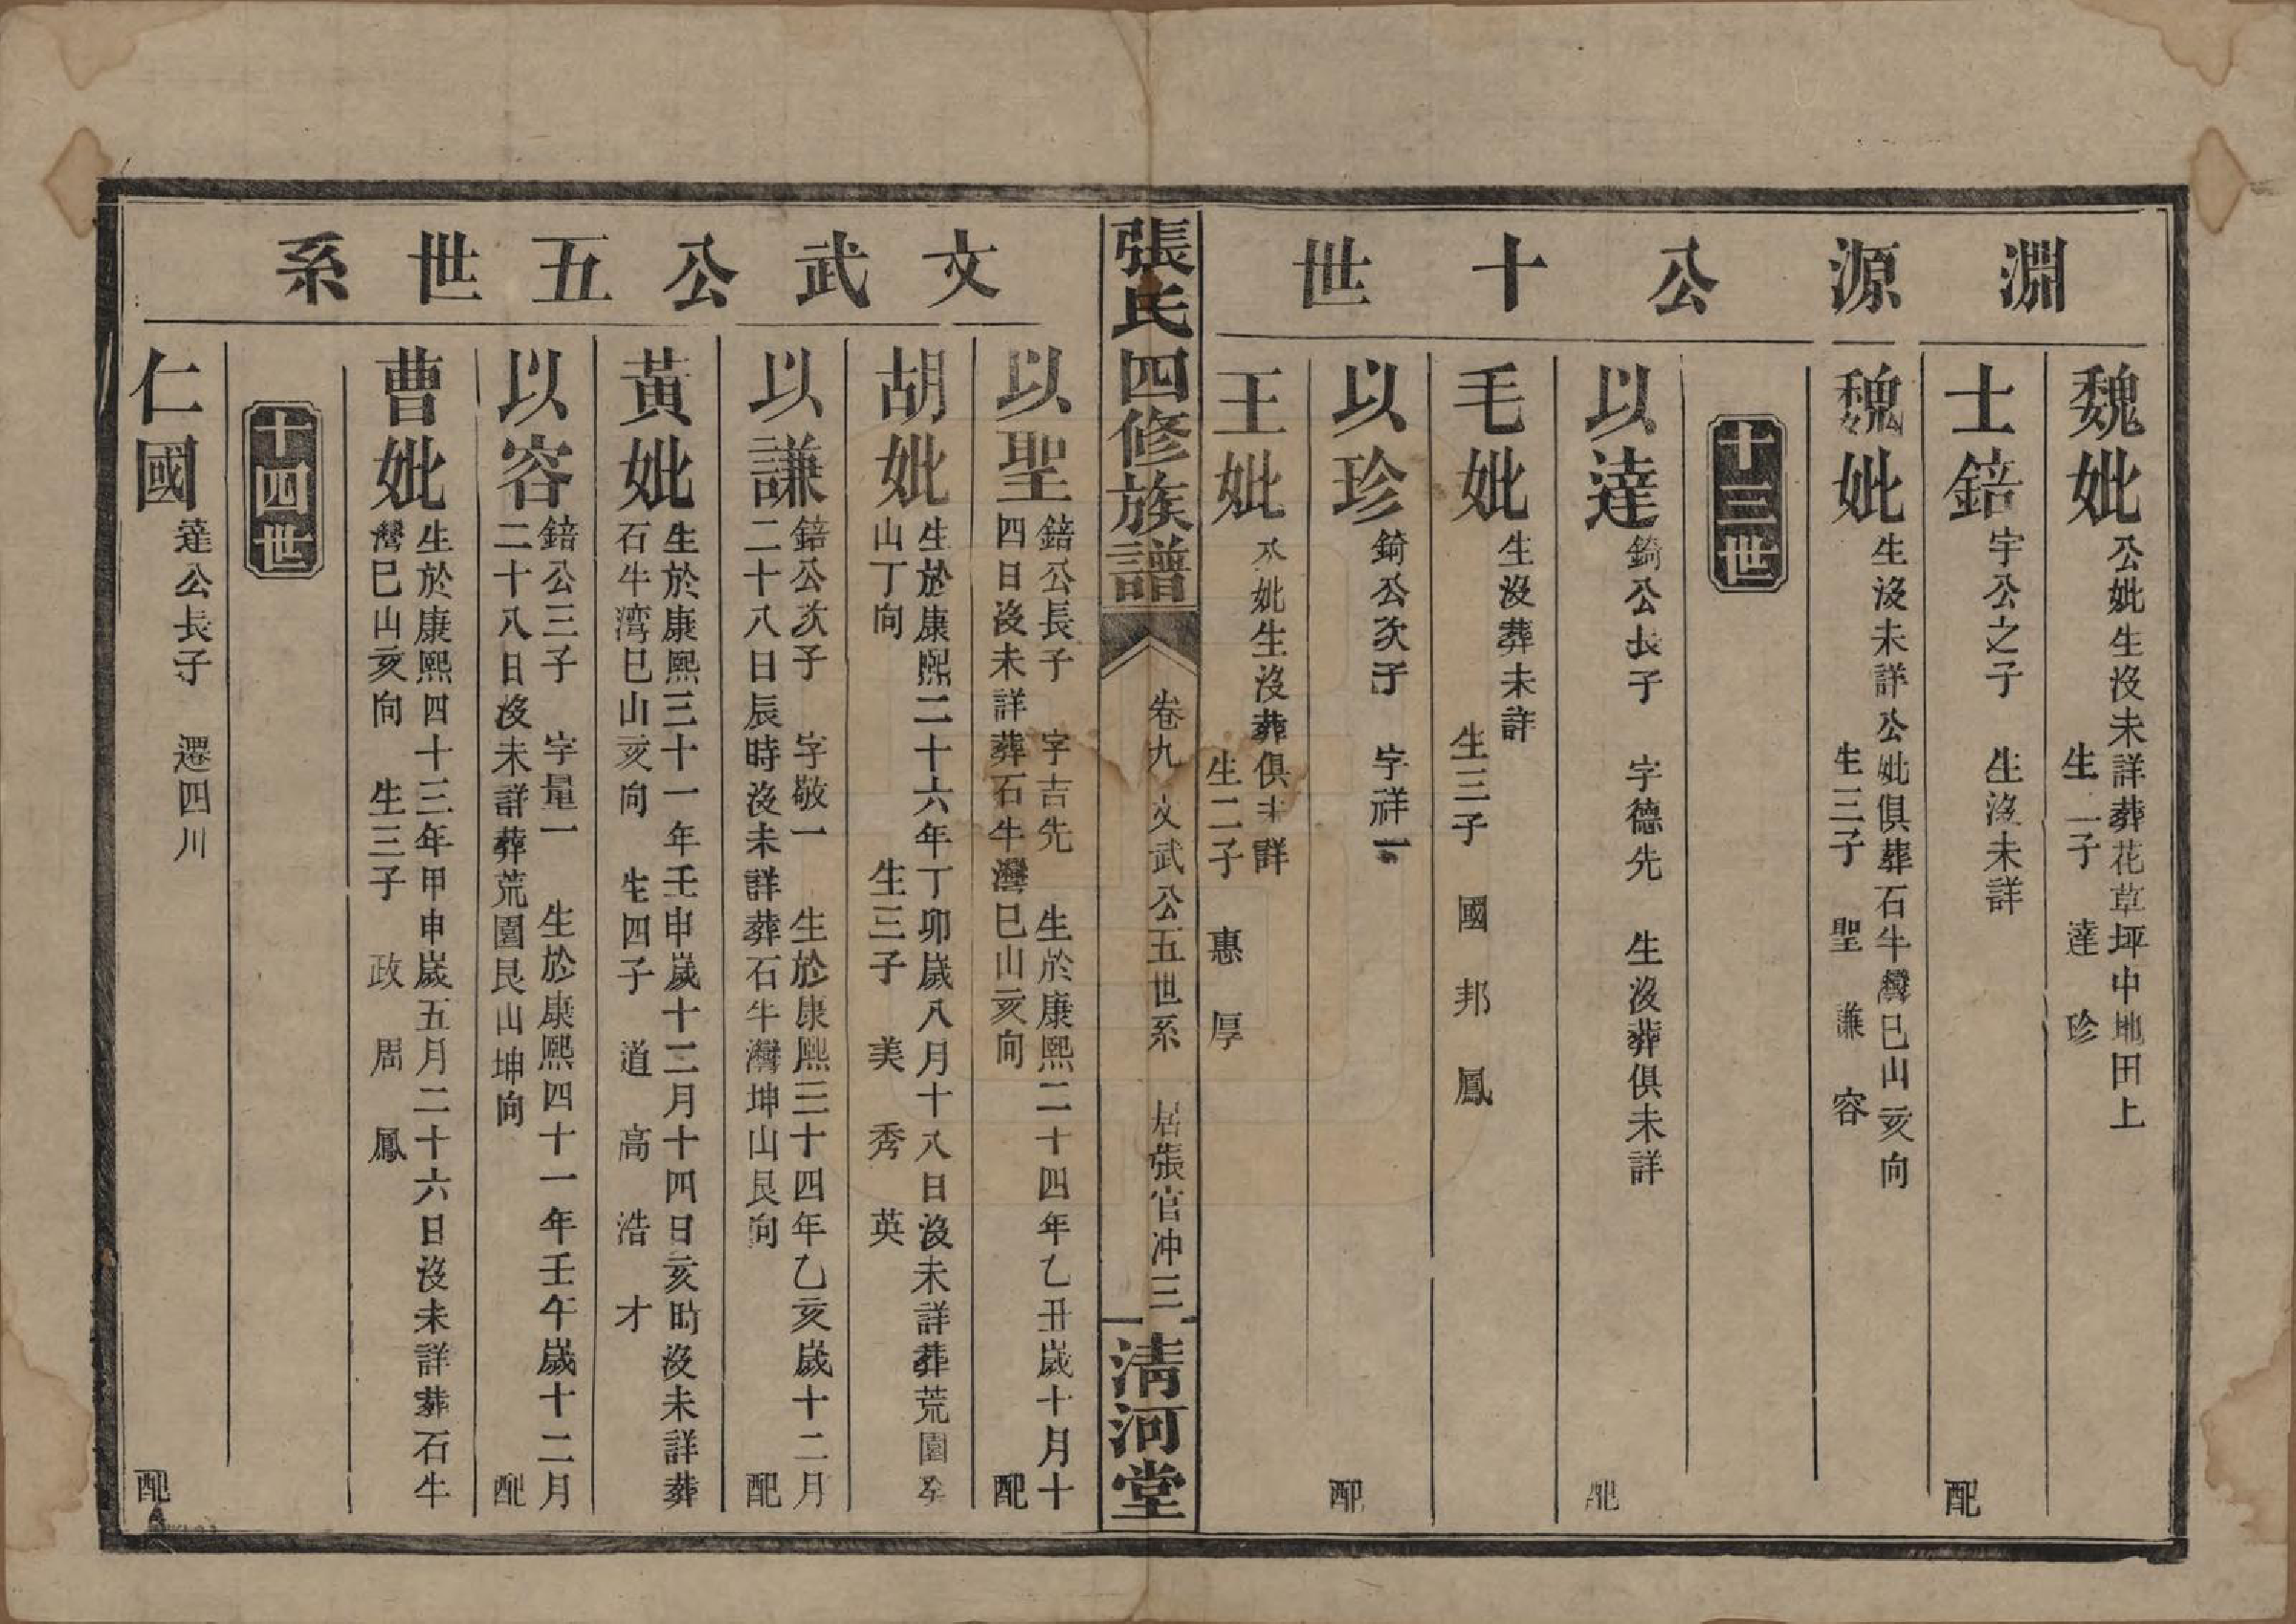 淵源公十世
魏妣 公妣生沒未詳葬花草坪中地田上
生二子 達 珍
士錇 宇公之子 生沒未詳 配
魏妣 生沒未詳公妣俱葬石牛灣巳山亥向
生三子 聖 謙 容
十三世
以達 錡公長子 字德先 生沒葬俱未詳 配
毛妣 生沒葬未詳
生三子 國 邦 鳳
以珍 錡公次子 字祥一 配
王妣 公妣生沒葬俱未詳
生二子 惠 厚
張氏四修族譜
卷九 文武公五世系 居張官冲三
清河堂
文武公五世系
以聖 錇公長子 字吉先 生於康熙二十四年乙丑歲十月十
四日沒未詳葬石牛灣巳山亥向 配
胡妣 生於康熙二十六年丁卯歲八月十八日沒未詳葬荒園癸
山丁向 生三子 美 秀 英
以謙 錇公次子 字敬一 生於康熙三十四年乙亥歲十二月
二十八日辰時沒未詳葬石牛灣坤山艮向 配
黃妣 生於康熙三十一年壬申歲十二月十四日亥時沒未詳葬
石牛湾巳山亥向 生四子 道 高 浩 才
以容 錇公三子 字量一 生於康熙四十一年壬午歲十二月
二十八日沒未詳葬荒園艮山坤向 配
曹妣 生於康熙四十三年甲申歲五月二十六日沒未詳葬石牛
灣巳山亥向 生三子 政 周 鳳
十四世
仁國 達公長子 遷四川 配